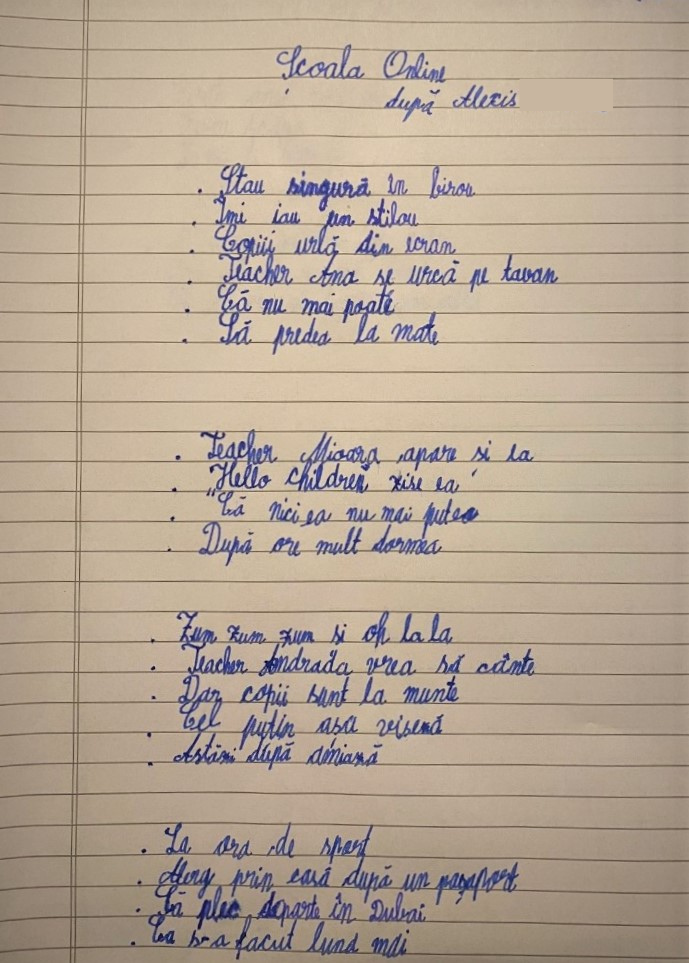 Școala Online
după Alexis
. Stau singură în birou
. Îmi iau un stilou
. Copiii urlă din ecran
. Teacher Ana se urcă pe tavan
. Că nu mai poate
. Să predea la mate
. Teacher Mioara apare și ea
. "Hello children" zise ea
. Că nici ea nu mai putea
. După ore mult dormea
. Zum zum zum si oh la la
. Teacher Andrada vrea să cânte
. Dar copii sunt la munte
. Cel puțin asa visează
. Astăzi după amiază
. La ora de sport
. Alerg prin casă după un pașaport
. Să plec departe în Dubai
. Ca s-a facut luna mai